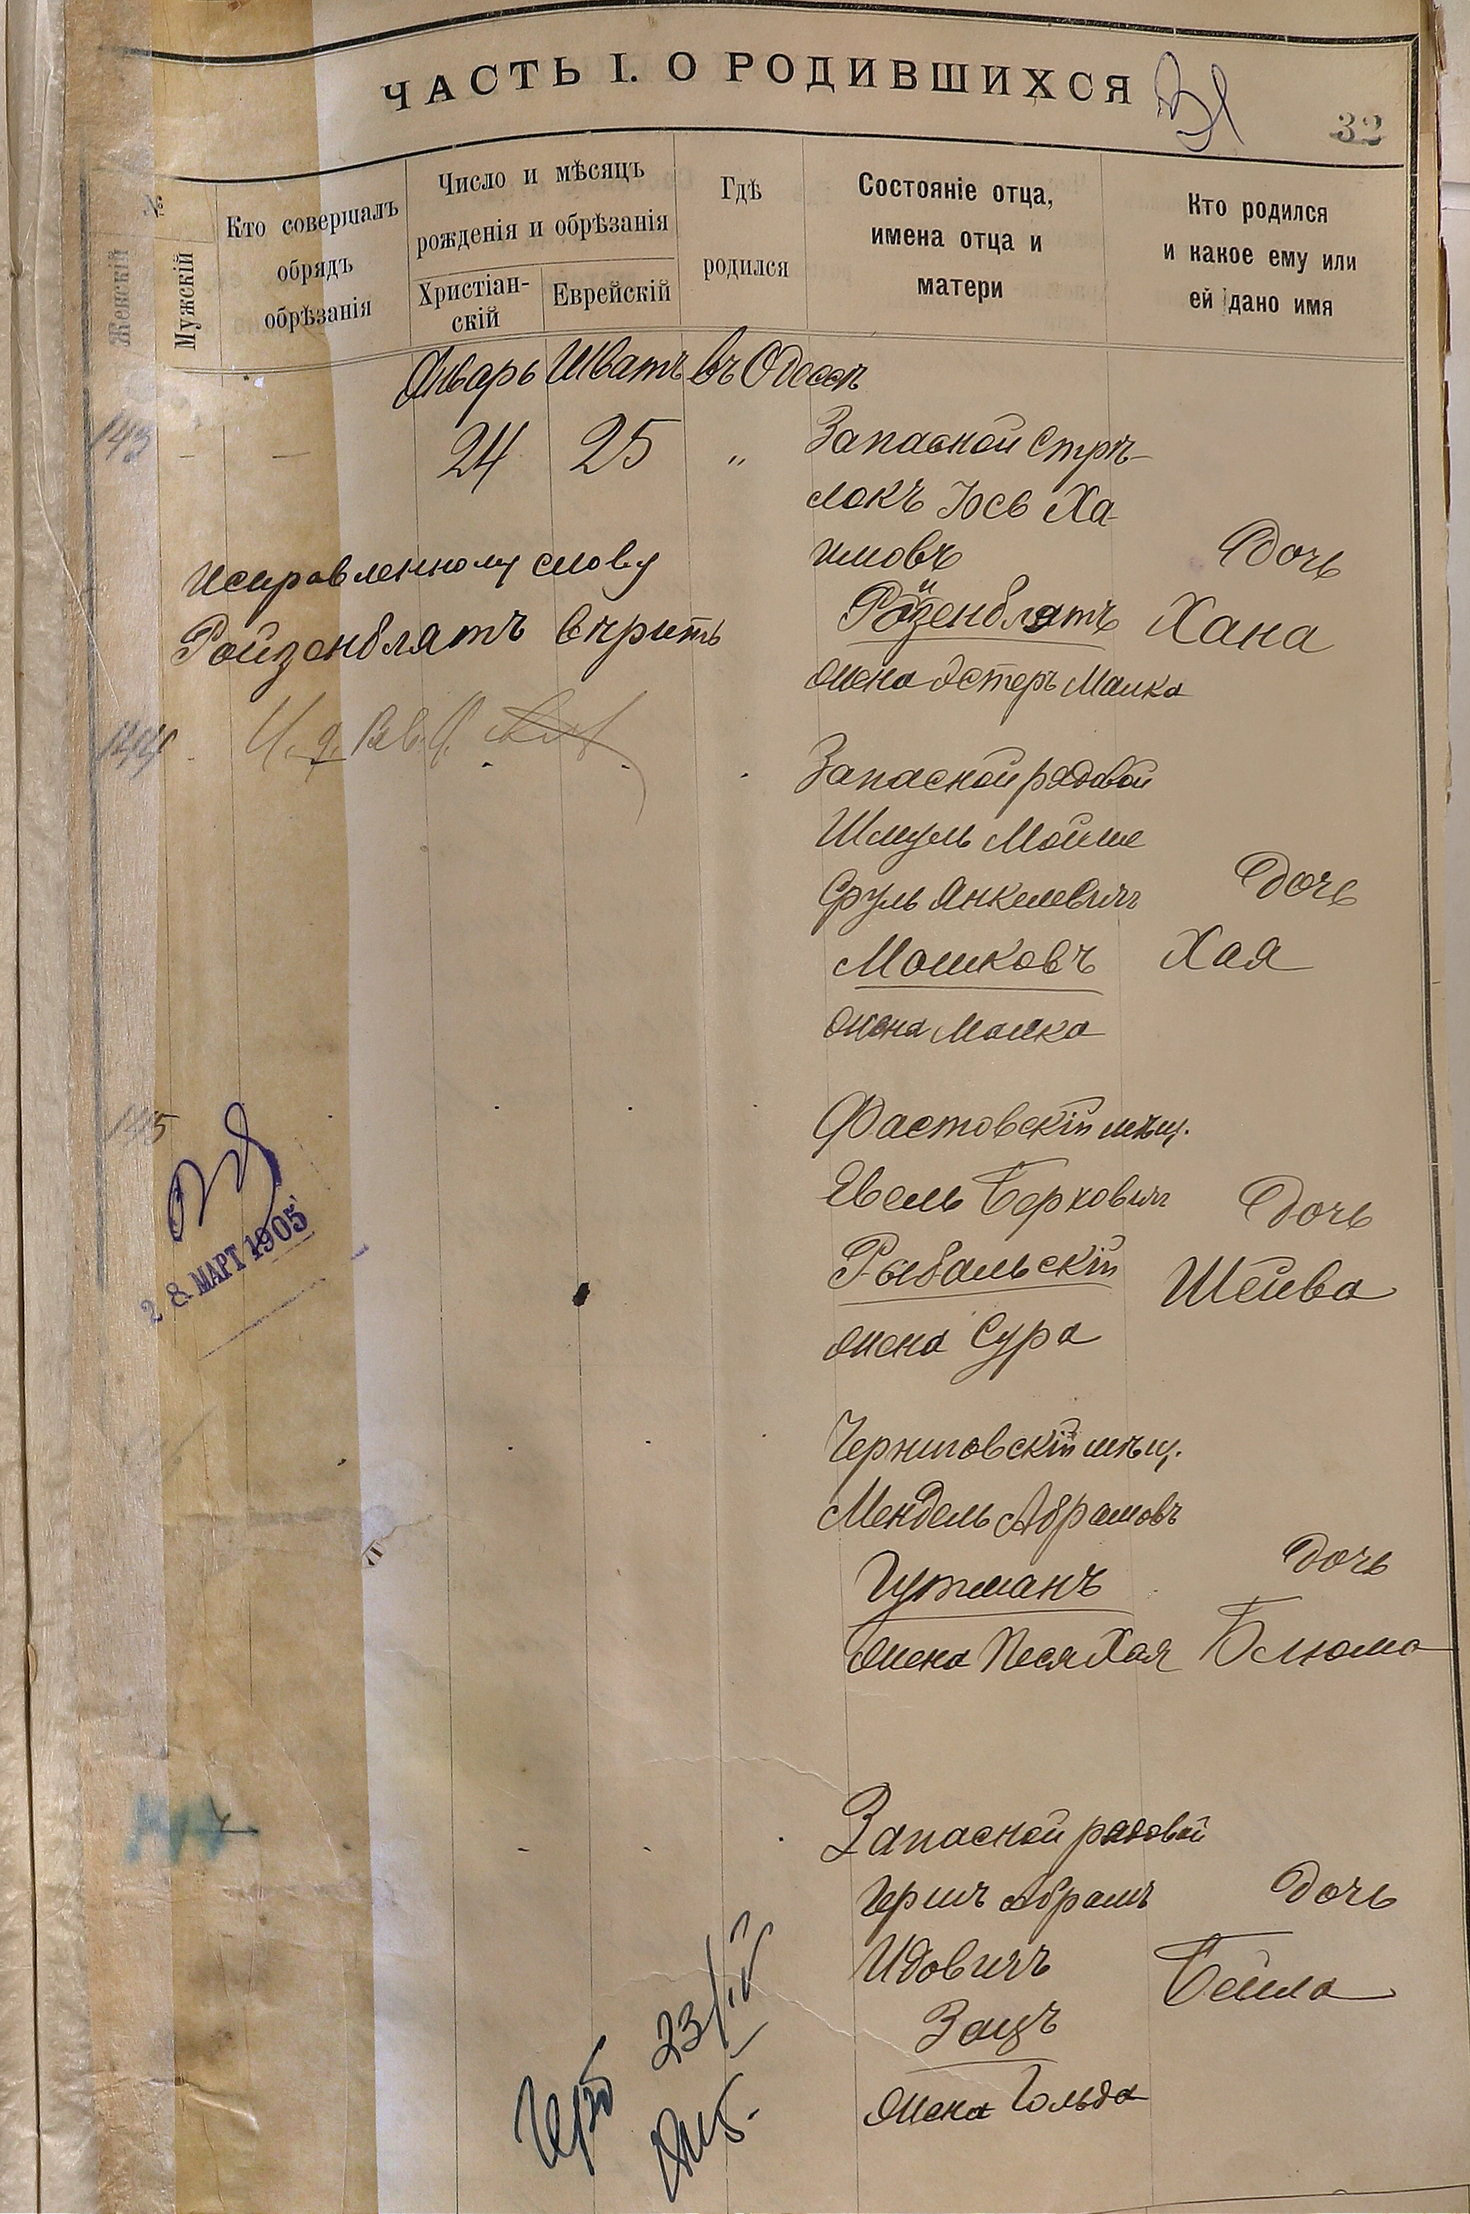 ЧАСТЬ I. О РОДИВШИХСЯ
32
№
Женскій
Мужскій
Кто совершалъ
обрядъ
обрѣзанія
Число и мѣсяцъ
рожденія и обрѣзанія
Христіан-
скій
Еврейскій
Гдѣ
родился
Состояніе отца,
имена отца и
матери
Кто родился
и какое ему или
ей дано имя
Январь Шватъ въ Одессѣ
143 — — 24 25 „
Запасной стрѣ-
локъ Іось Ха-
имовъ
Ройзенблятъ
жена Эстеръ Малка
Дочь
Хана
исправленному слову
Ройзенблятъ вѣрить
144
Запасной рядовой
Шмуль Мойше
Сруль Янкелевичъ
Мошковъ
жена Малка
Дочь
Хая
145
Фастовскій мѣщ.
Евель Берковичъ
Рыбальскій
жена Сура
Дочь
Шейва
28 МАРТ 1905
Черниговскій мѣщ.
Мендель Абрамовъ
Гутманъ
жена Песя Хая
Дочь
Блюма
147
Запасной рядовой
Гершъ Абрамъ
Идовичъ
Зацъ
жена Гольда
Дочь
Бейла
23/IV